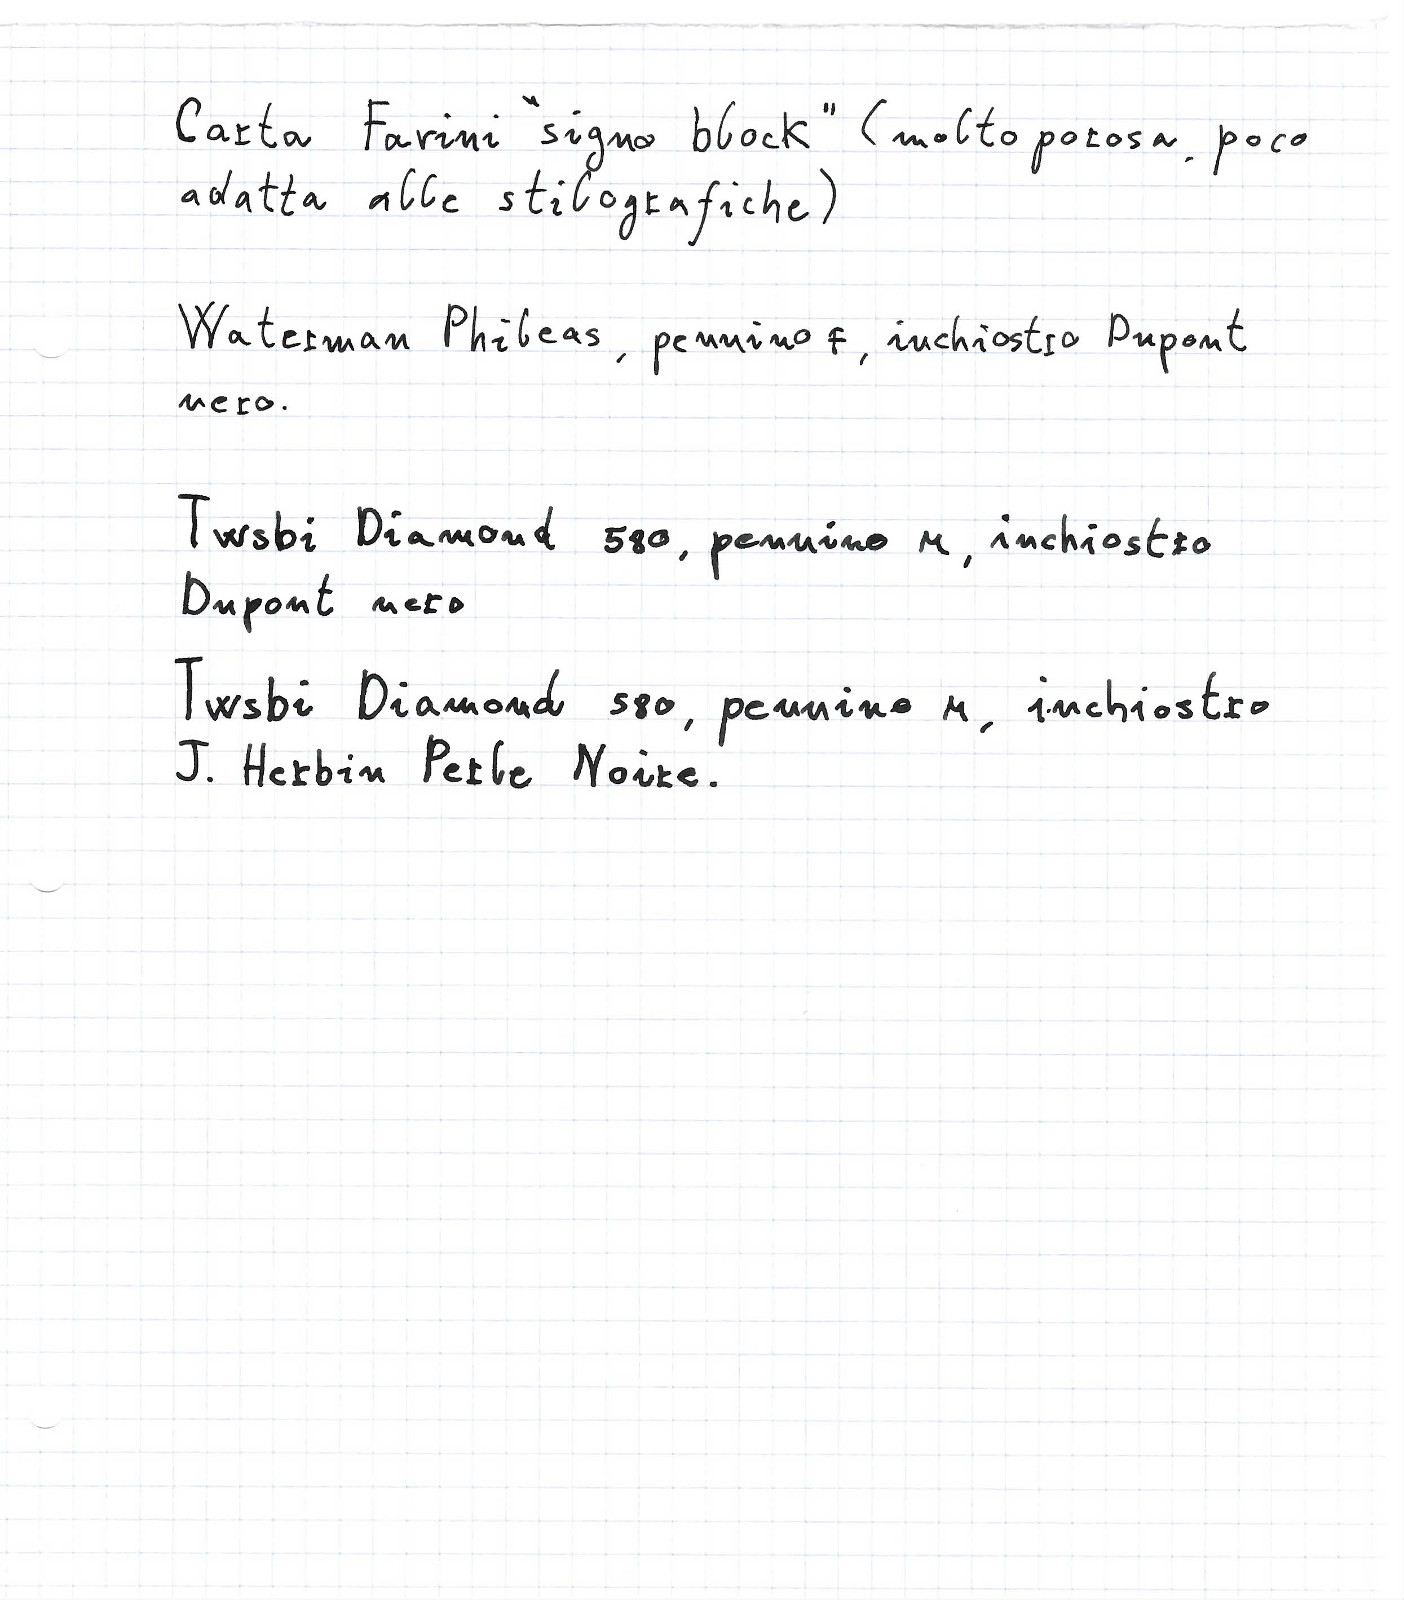 Carta Farini "signo block" (molto porosa, poco
adatta alle stilografiche)
Waterman Phileas, pennino F, inchiostro Dupont
nero.
Twsbi Diamond 580, pennino M, inchiostro
Dupont nero
Twsbi Diamond 580, pennino M, inchiostro
J. Herbin Perle Noire.